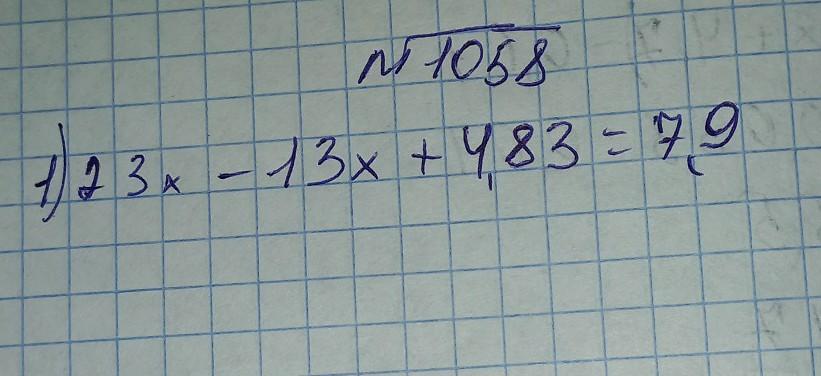 №1058
1) 23x - 13x + 4,83 = 7,9